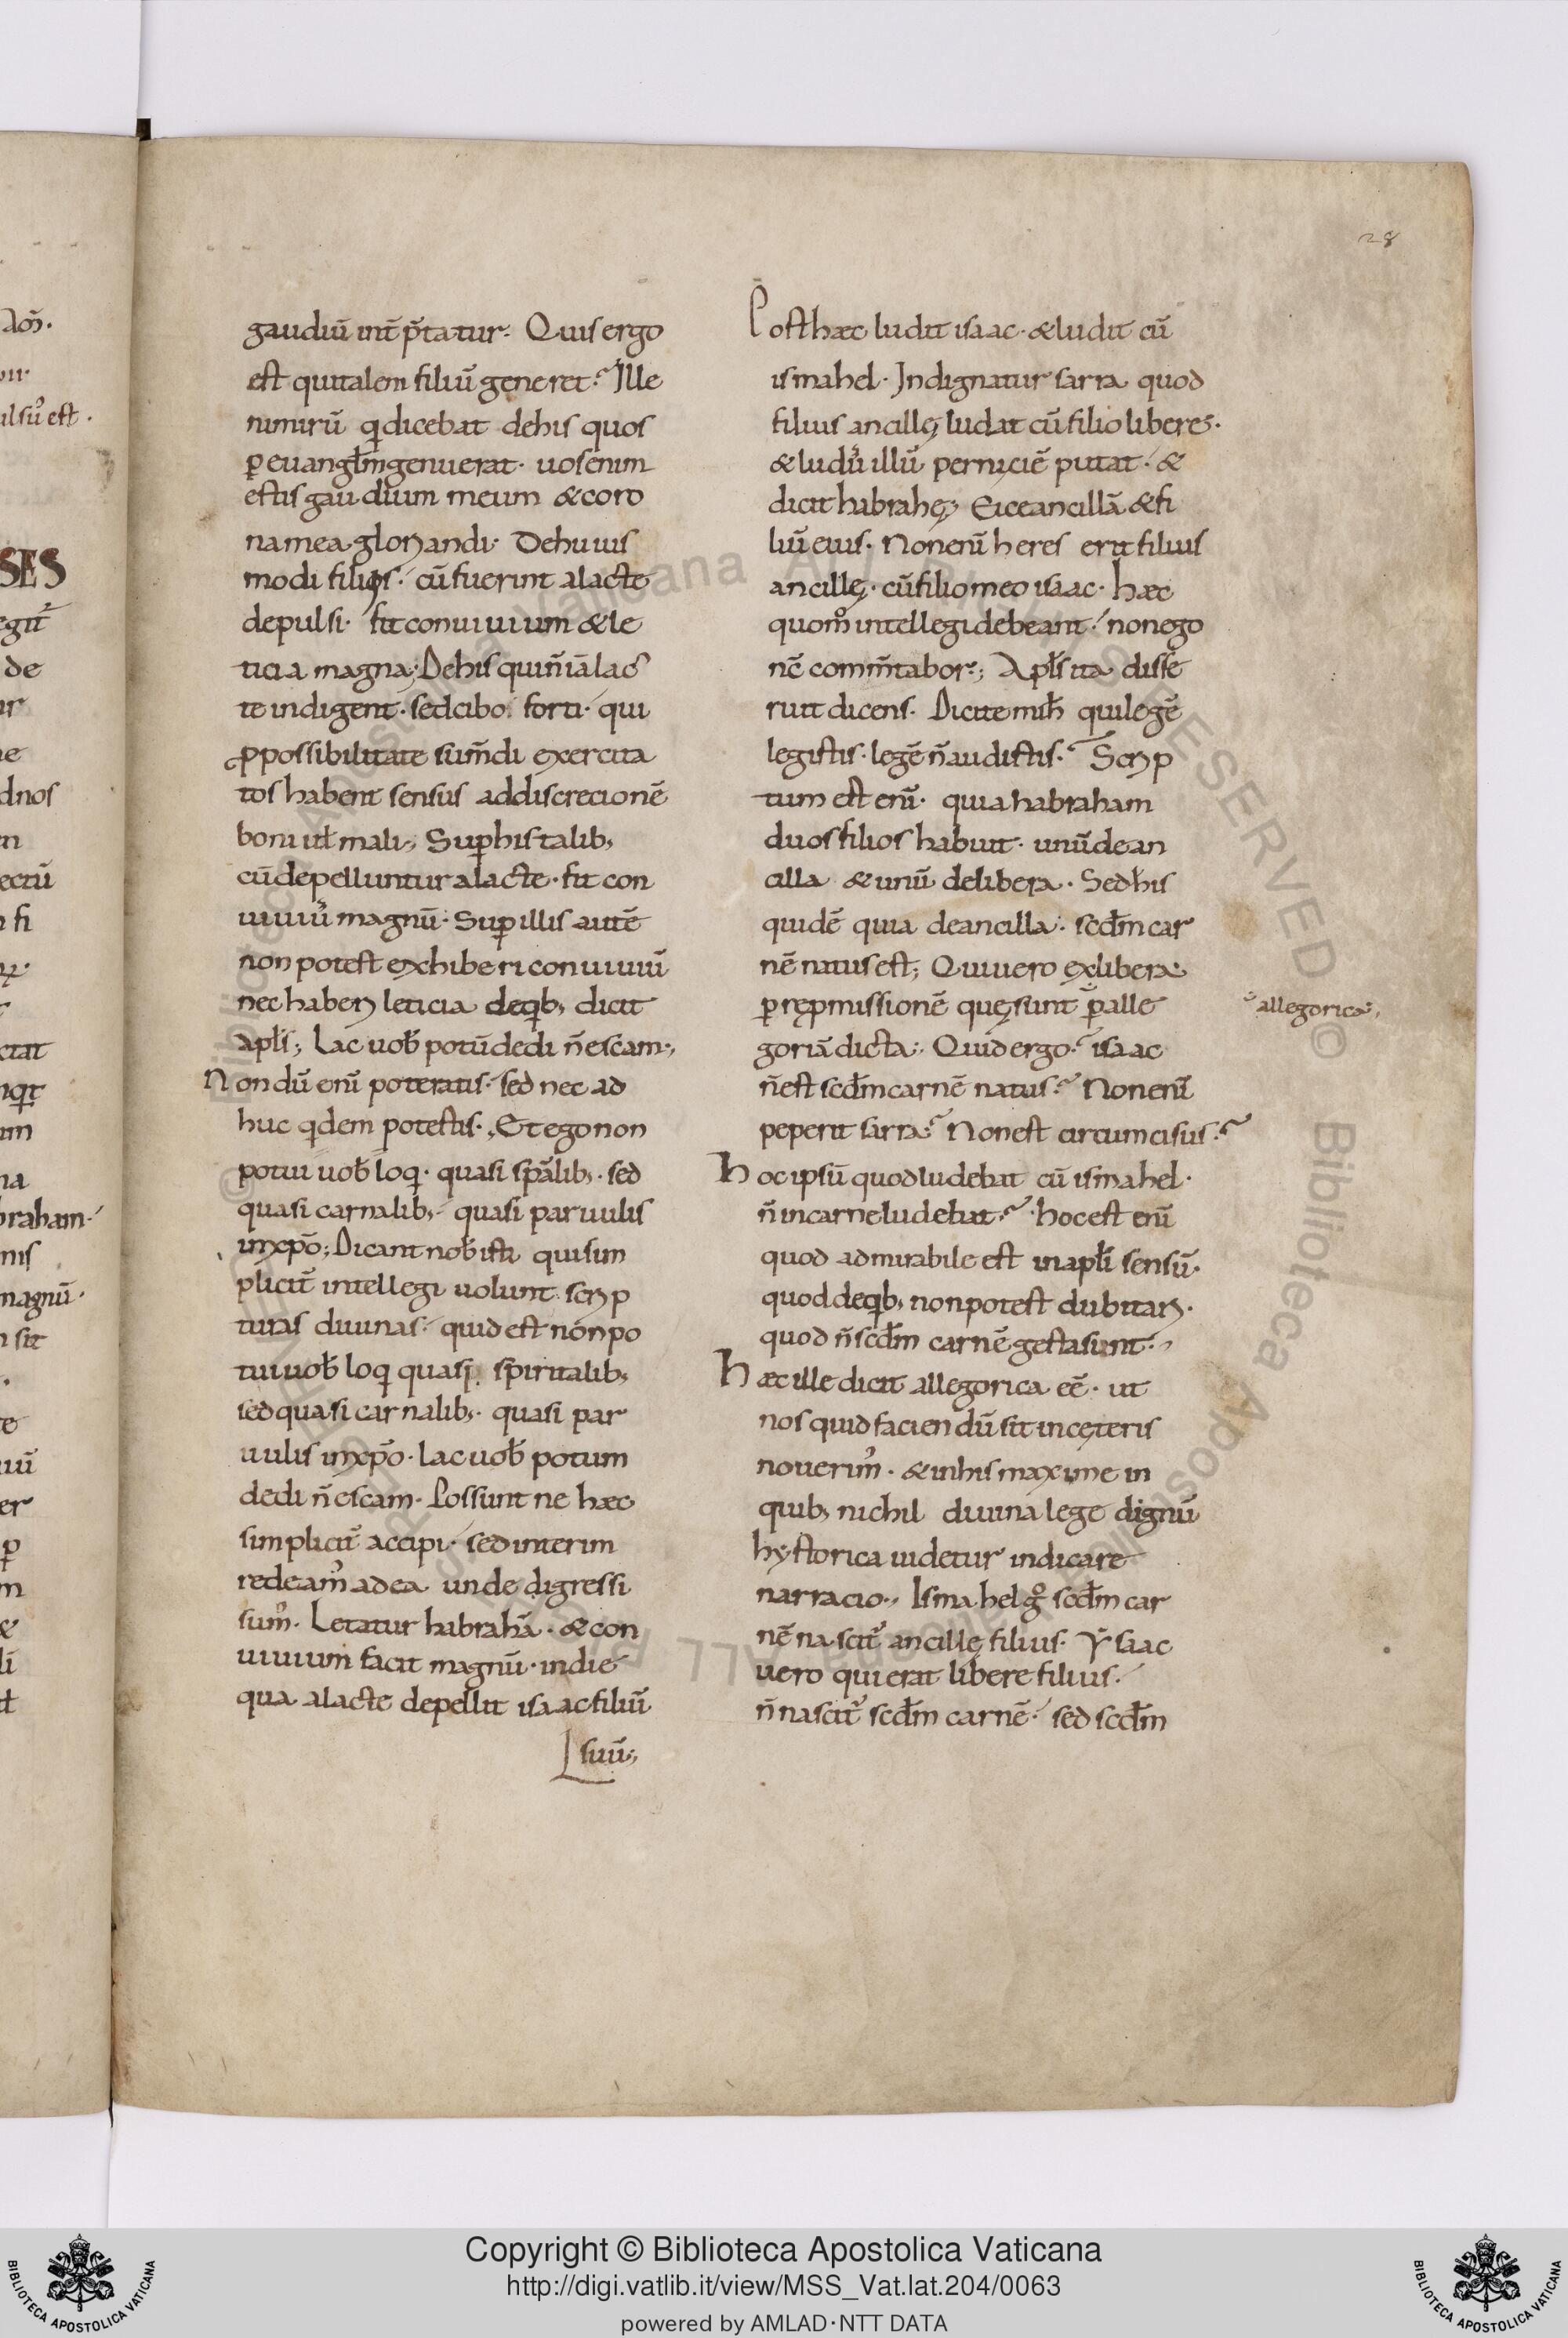 28
gaudiū int̄p̄tatur. Quis ergo
est qui talem filiū generet? Ille
nimirū qi dicebat de his quos
ꝑ euangłm genuerat. uos enim
estis gaudium meum & coro
na mea gloriandi. De huius
modi filiis. cū fuerint a lacte
depulsi. fit conuiuium & le
ticia magna; De his qui ñ iā lac
te indigent. sed cibo forti. qui
ꝓ possibilitate sum̄di exercita
tos habent sensus ad discrecionē
boni uł mali; Suꝑ his talib;
cū depelluntur a lacte. fit con
uiuiū magnū. Suꝑ illis autē
non potest exhiberi conuiuiū
nec haberi leticia de qib; dicit
Apłs; Lac uob̄ potū dedi ñ escam;
Non dū enī poteratis. sed nec ad
huc qidem potestis. Et ego non
potui uob̄ loqi. quasi sp̄alib;. sed
quasi carnalib;. quasi paruulis
in xp̄o; Dicant nob̄ isti qui sim
plicit̄ intellegi uolunt scrip
turas diuinas. quid est non po
tui uob̄ loqi quasi spiritalib;
sed quasi carnalib;. quasi par
uulis in xp̄o. Lac uob̄ potum
dedi ñ escam. Possunt ne hæc
simplicit̄ accipi. sed interim
redeam᾽ ad ea unde digressi
sum᾽. Letatur habrahā. & con
uiuium facit magnū. in die
qua a lacte depellit isaac filiū
suū;
Post hæc ludit isaac. & ludit cū
ismahel. Indignatur sarra quod
filius ancillę ludat cū filio libere.
& ludū illū perniciē putat. &
dicit habrahę; Eice ancillā & fi
liū eius. Non enī heres erit filius
ancillę. cū filio meo isaac. Hæc
quom̊ intellegi debeant. non ego
nc̄ comm̄tabor; Apłs ita disse
ruit dicens. Dicite mih̄ qui legē
legistis. legē ñ audistis? Scrip
tum est enī. quia habraham
duos filios habuit. unū de an
cilla & unū de libera. Sed his
quidē quia de ancilla. scđm car
nē natus est; Qui uero ex libera
ꝑ repmissionē quę sunt ꝑ alle
goriā dicta; Quid ergo? isaac
allegorica;
ñ est scđm carnē natus? Non enī
peperit sarra? Non est circumcisus?
Hoc ipsū quod ludebat cū ismahel.
ñ in carne ludebat? hoc est enī
quod admirabile est in apłi sensū.
quod de qib; non potest dubitari.
quod ñ scđm carnē gesta sunt;
Hæc ille dicit allegorica eē. ut
nos quid faciendū sit in cęteris
nouerim᾽. & in his maxime in
quib; nichil diuina lege dignū
hystorica uidetur indicare
narracio; Ismahel g̊ scđm car
nē nascit᾽ ancillę filius. Ysaac
uero qui erat libere filius.
ñ nascit᾽ scđm carnē. sed scđm
SES
de
dnos
ectū
braham
nis
magnū.
sit
© Biblioteca Apostolica Vaticana ALL RIGHTS RESERVED
Copyright © Biblioteca Apostolica Vaticana
http://digi.vatlib.it/view/MSS_Vat.lat.204/0063
powered by AMLAD·NTT DATA
BIBLIOTECA APOSTOLICA VATICANA
BIBLIOTECA APOSTOLICA VATICANA